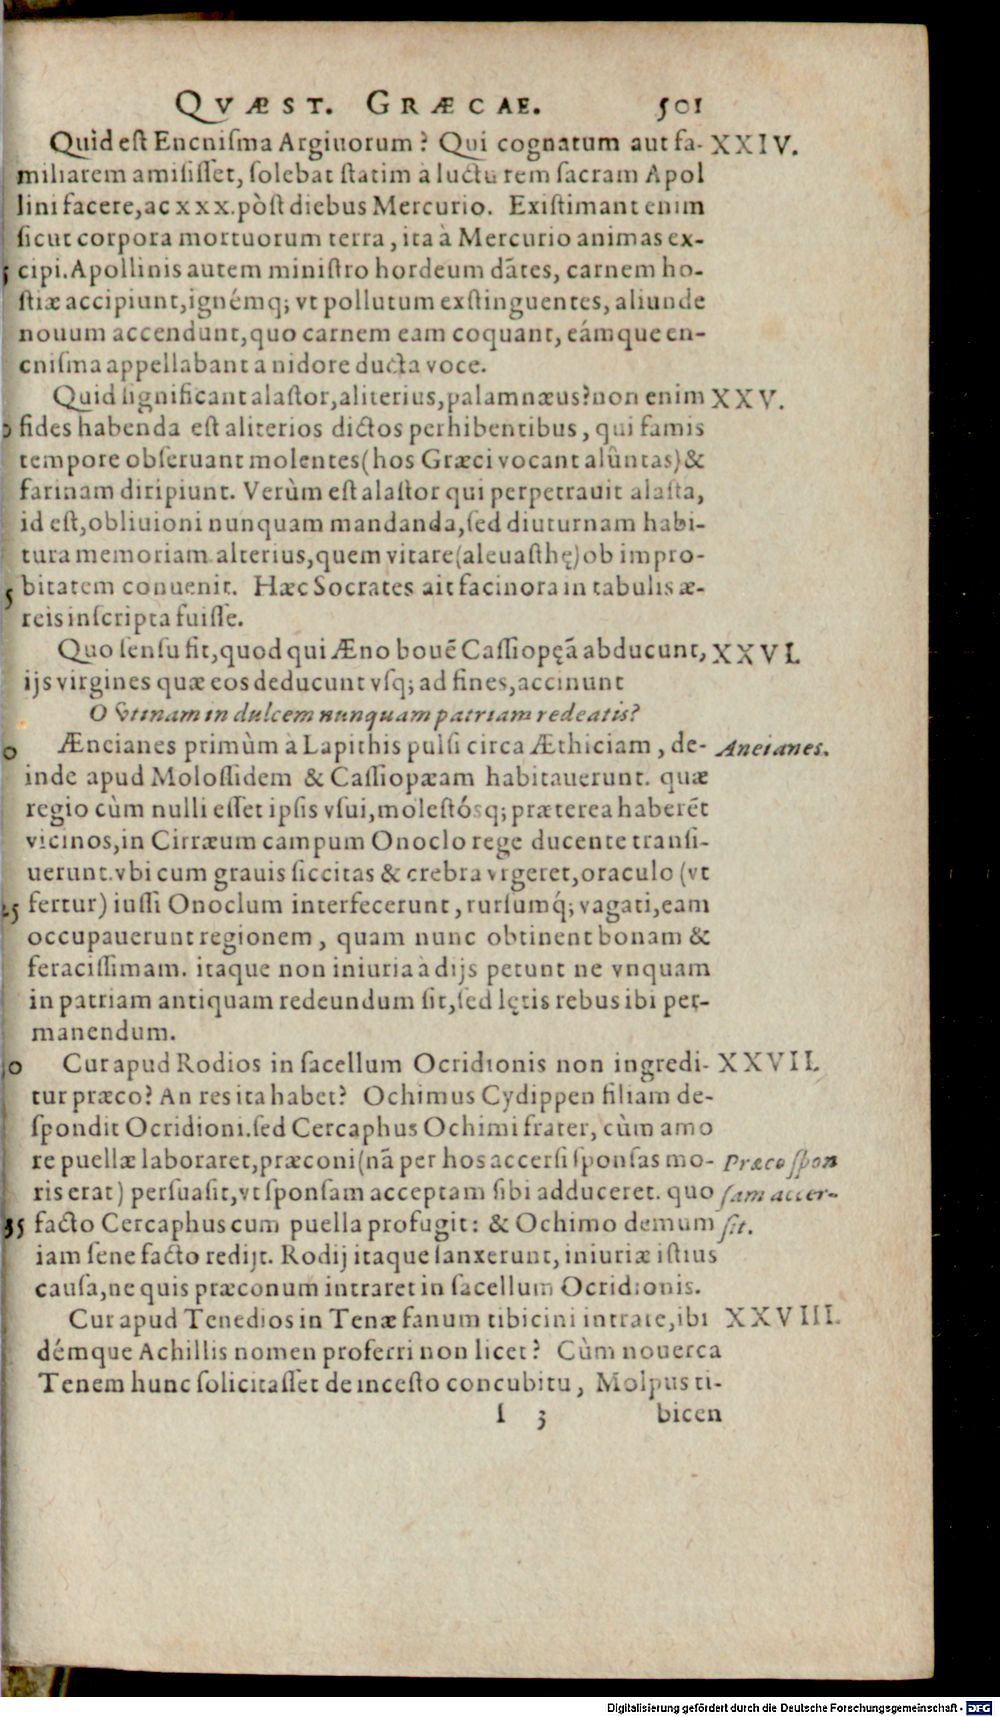 QVÆST. GRÆCAE. 501
Quid est Encnisma Argiuorum? Qui cognatum aut fa- XXIV.
miliarem amisisset, solebat statim à luctu rem sacram Apol
lini facere, ac xxx. pòst diebus Mercurio. Existimant enim
sicut corpora mortuorum terra, ita à Mercurio animas ex-
5 cipi. Apollinis autem ministro hordeum dātes, carnem ho-
stiæ accipiunt, ignémq; vt pollutum exstinguentes, aliunde
nouum accendunt, quo carnem eam coquant, eámque en-
cnisma appellabant a nidore ducta voce.
Quid significant alastor, aliterius, palamnæus? non enim XXV.
0 fides habenda est aliterios dictos perhibentibus, qui famis
tempore obseruant molentes (hos Græci vocant alûntas) &
farinam diripiunt. Verùm est alastor qui perpetrauit alasta,
id est, obliuioni nunquam mandanda, sed diuturnam habi-
tura memoriam. alterius, quem vitare (aleuasthę) ob impro-
5 bitatem conuenit. Hæc Socrates ait facinora in tabulis æ-
reis inscripta fuisse.
Quo sensu fit, quod qui Æno bouē Cassiopęā abducunt, XXVI.
ijs virgines quæ eos deducunt vsq; ad fines, accinunt
O vtinam in dulcem nunquam patriam redeatis?
0 Æncianes primùm à Lapithis pulsi circa Æthiciam, de- Aneianes.
inde apud Molossidem & Cassiopæam habitauerunt. quæ
regio cùm nulli esset ipsis vsui, molestósq; præterea haberēt
vicinos, in Cirræum campum Onoclo rege ducente transi-
uerunt. vbi cum grauis siccitas & crebra vrgeret, oraculo (vt
25 fertur) iussi Onoclum interfecerunt, rursumq́; vagati, eam
occupauerunt regionem, quam nunc obtinent bonam &
feracissimam. itaque non iniuria à dijs petunt ne vnquam
in patriam antiquam redeundum sit, sed lętis rebus ibi per-
manendum.
30 Cur apud Rodios in sacellum Ocridionis non ingredi- XXVII.
tur præco? An res ita habet? Ochimus Cydippen filiam de-
spondit Ocridioni. sed Cercaphus Ochimi frater, cùm amo
re puellæ laboraret, præconi (nā per hos accersi sponsas mo- Præco spon
ris erat) persuasit, vt sponsam acceptam sibi adduceret. quo sam accer-
35 facto Cercaphus cum puella profugit: & Ochimo demum sit.
iam sene facto redijt. Rodij itaque sanxerunt, iniuriæ istius
causa, ne quis præconum intraret in sacellum Ocridionis.
Cur apud Tenedios in Tenæ fanum tibicini intrare, ibi XXVIII.
démque Achillis nomen proferri non licet? Cùm nouerca
Tenem hunc solicitasset de incesto concubitu, Molpus ti-
I 3 bicen
Digitalisierung gefördert durch die Deutsche Forschungsgemeinschaft - DFG